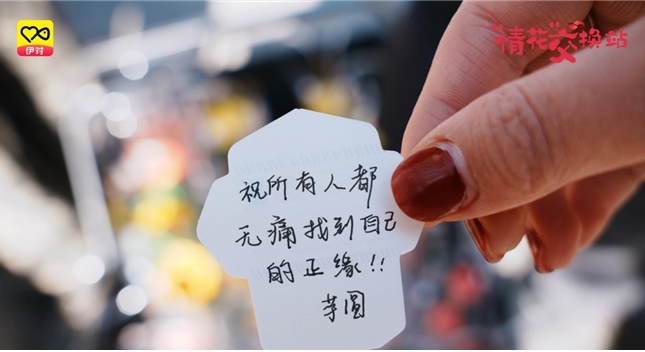 伊对
情花交换站
祝所有人都
无痛找到自己
的正缘!!
芋圆